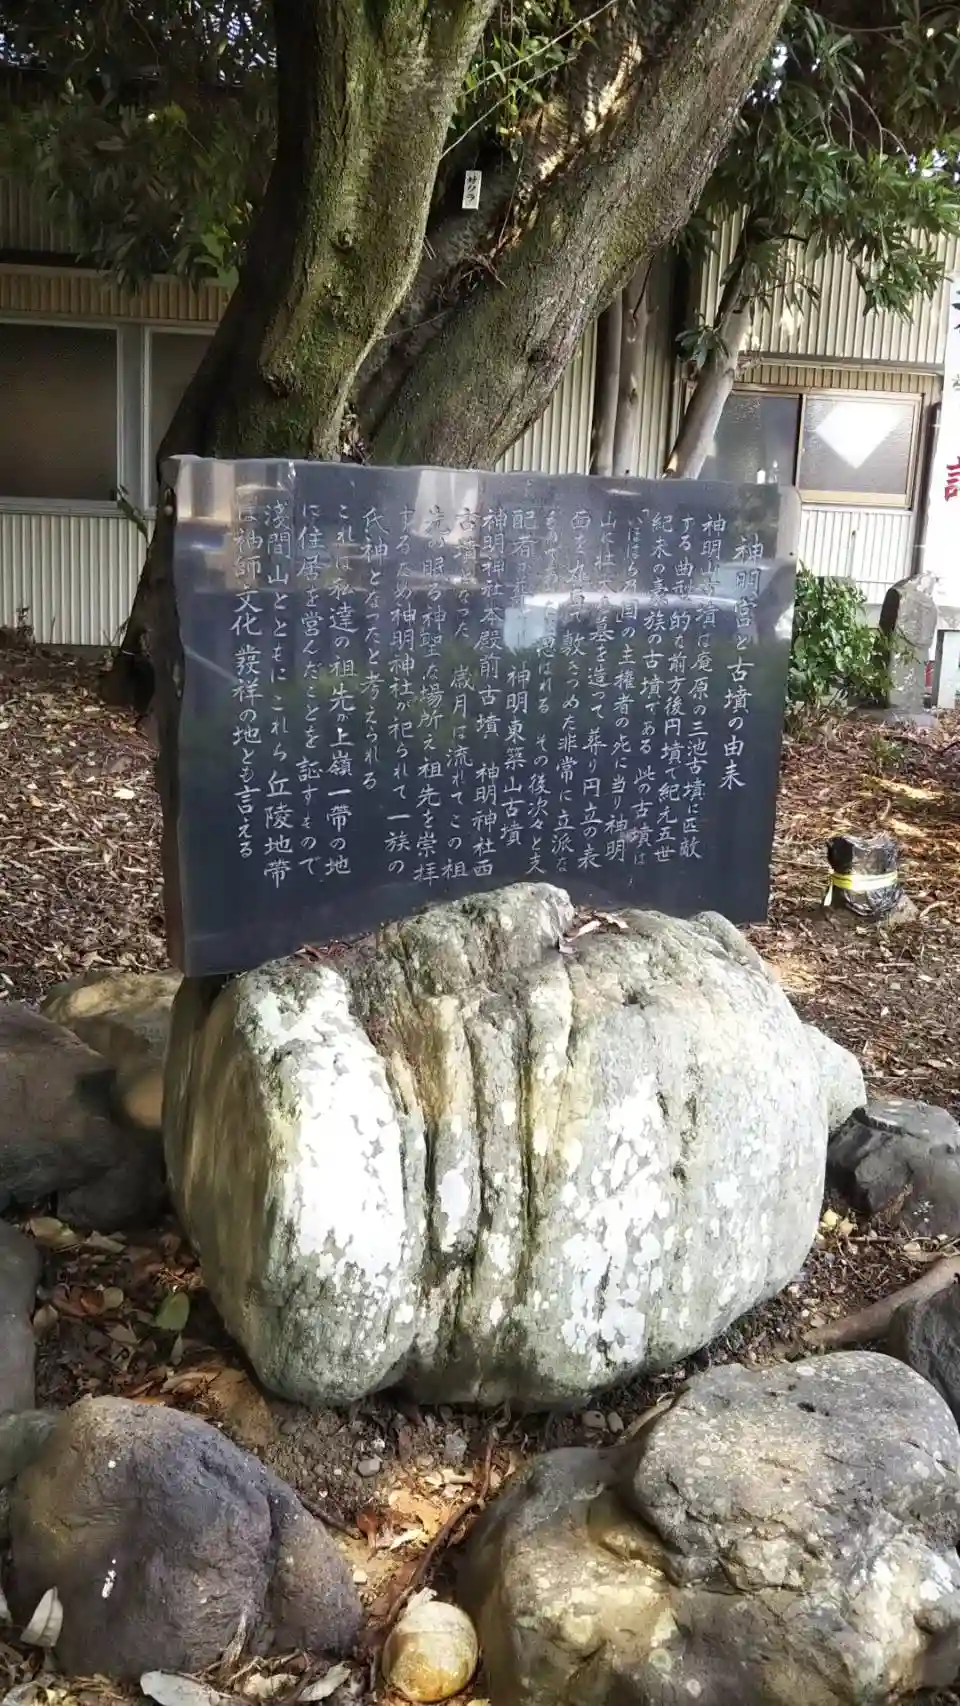 神明宮と古墳の由来
神明山古墳は庵原の三池古墳に匹敵
する典型的な前方後円墳で紀元五世
紀末の豪族の古墳である 此の古墳は
いほはら乃国の主権者の死に当り神明
山に壮大な墓を造って葬り円立の表
面を丸石で敷きつめた非常に立派な
ものであったと思はれる その後次々と支
配者が葬られ 神明東築山古墳
神明神社本殿前古墳 神明神社西
古墳となった 歳月は流れてこの祖
先の眠る神聖な場所え祖先を崇拝
するため神明神社が祀られて一族の
氏神となったと考えられる
これは私達の祖先が上嶺一帯の地
に住居を営んだことを証すもので
浅間山とともにこれら丘陵地帯
は袖師文化發祥の地とも言える
サクラ